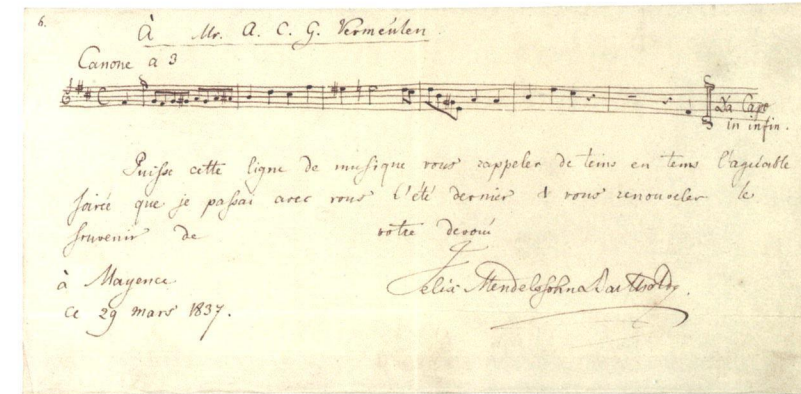 6.
À Mr. A. C. G. Vermeulen.
Canone a 3
Da Capo
in infin.
Puisse cette ligne de musique vous rappeler de tems en tems l'agréable
soirée que je passai avec vous l'été dernier & vous renouveler le
souvenir de votre devoué
Felix Mendelssohn Bartholdy.
à Mayence
ce 29 mars 1837.